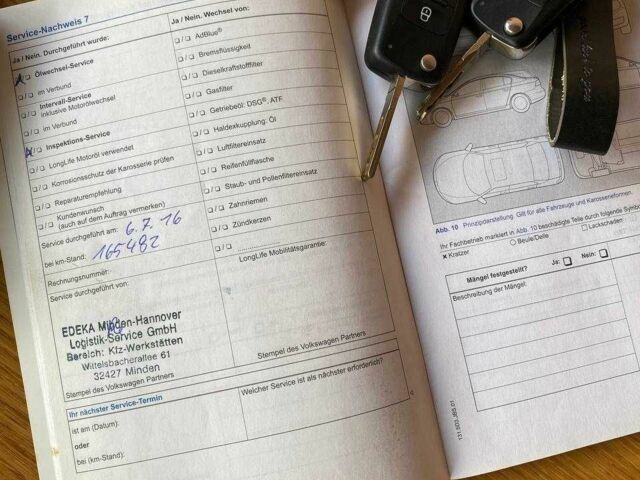 Service-Nachweis 7
Ja / Nein. Durchgeführt wurde:
Ölwechsel-Service
im Verbund
Intervall-Service
inklusive Motorölwechsel
im Verbund
Inspektions-Service
LongLife Motoröl verwendet
Korrosionsschutz der Karosserie prüfen
Reparaturempfehlung
Kundenwunsch
(auch auf dem Auftrag vermerken)
Service durchgeführt am: 6.7.16
bei km-Stand: 165482
Rechnungsnummer:
Service durchgeführt von:
EDEKA Minden-Hannover
Logistik-Service GmbH
Bereich: Kfz-Werkstätten
Wittelsbacherallee 61
32427 Minden
Stempel des Volkswagen Partners
Ihr nächster Service-Termin
ist am (Datum):
oder
bei (km-Stand):
Ja / Nein. Wechsel von:
AdBlue®
Bremsflüssigkeit
Dieselkraftstofffilter
Gasfilter
Getriebeöl: DSG®, ATF
Haldexkupplung: Öl
Luftfiltereinsatz
Reifenfüllflasche
Staub- und Pollenfiltereinsatz
Zahnriemen
Zündkerzen
LongLife Mobilitätsgarantie:
Stempel des Volkswagen Partners
Welcher Service ist als nächster erforderlich?
Abb. 10 Prinzipdarstellung. Gilt für alle Fahrzeuge und Karosserieformen.
Ihr Fachbetrieb markiert in Abb. 10 beschädigte Teile durch folgende Symbole
x Kratzer
Beule/Delle
Lackschaden
Mängel festgestellt? Ja: Nein:
Beschreibung der Mängel: